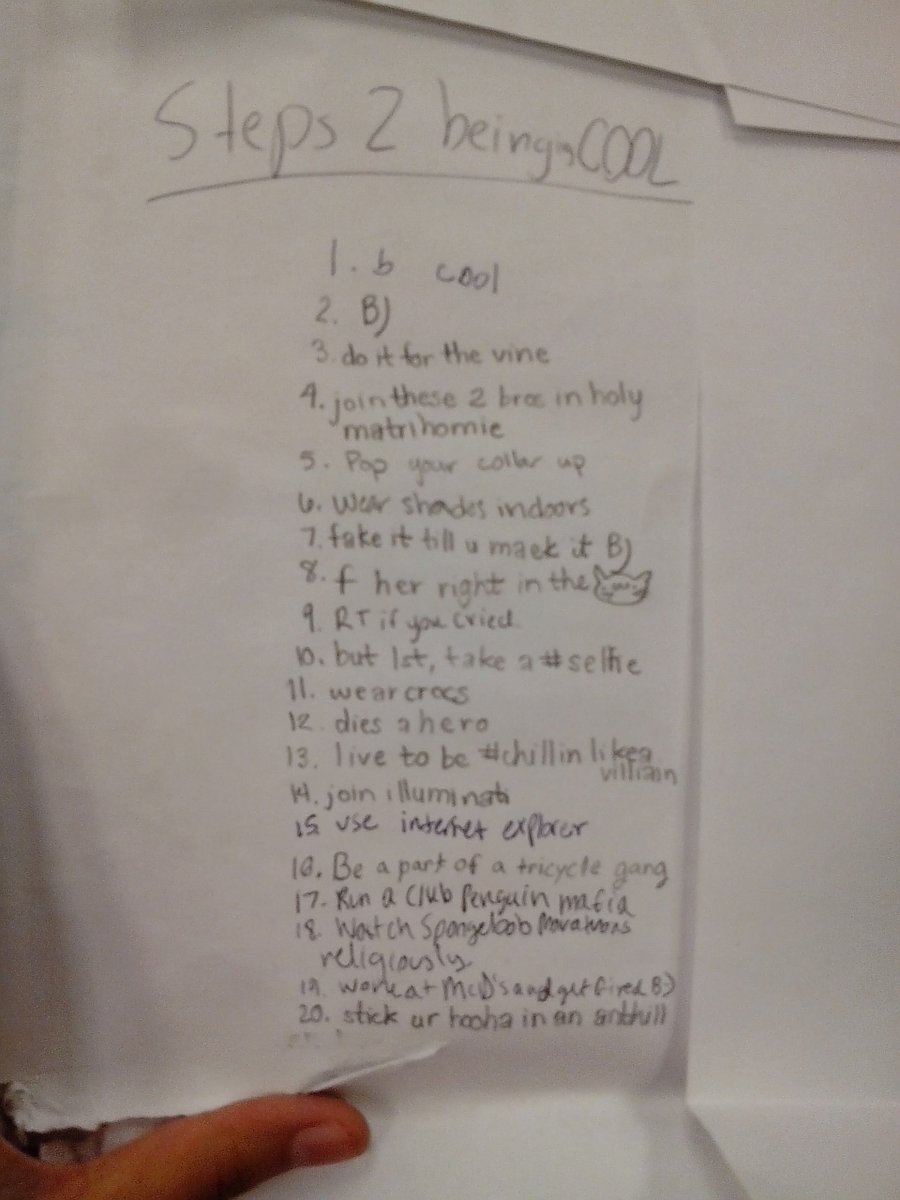 Steps 2 being COOL
1. b cool
2. B)
3. do it for the vine
4. join these 2 bros in holy
matrihomie
5. Pop your collar up
6. wear shades indoors
7. fake it till u maek it B)
8. f her right in the
9. RT if you cried
10. but 1st, take a #selfie
11. wear crocs
12. dies a hero
13. live to be #chillin like a
villiain
14. join illuminati
15. use internet explorer
16. Be a part of a tricycle gang
17. Run a Club Penguin mafia
18. Watch Spongebob
religiously
19. work at McD's and get fired 8)
20. stick ur hooha in an